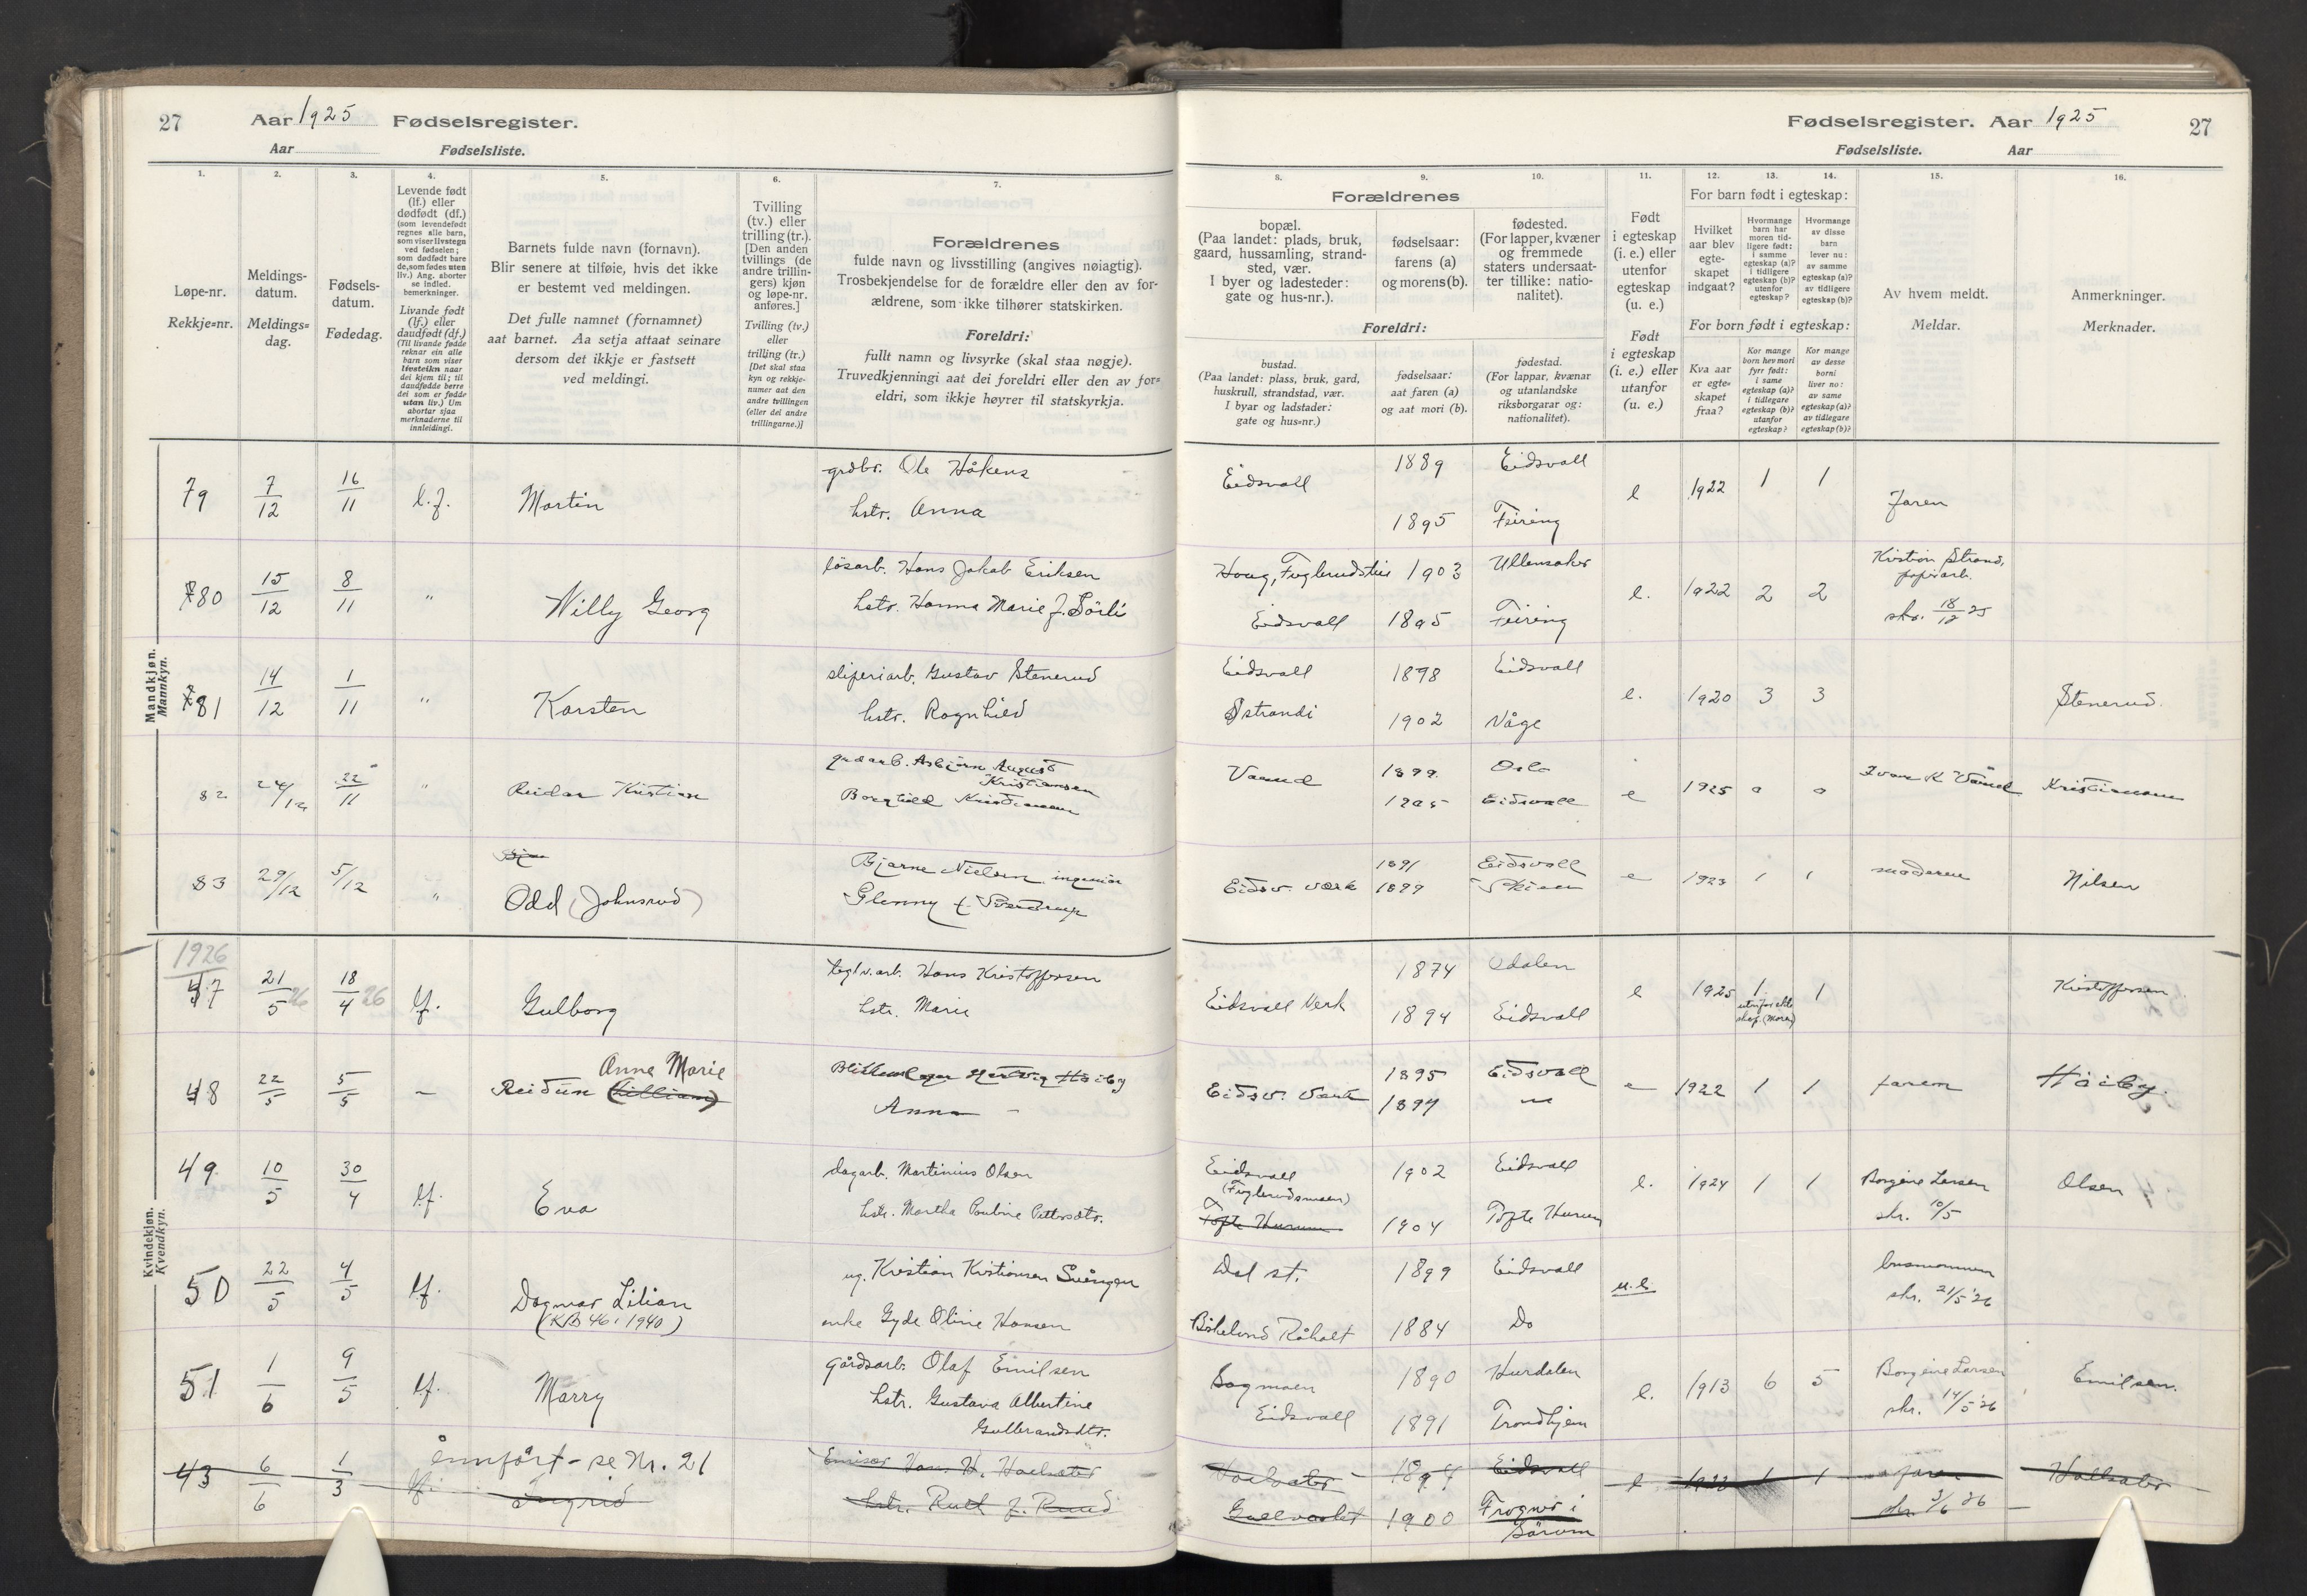 27 Aar 1925 Fødselsregister.
Aar Fødselsliste.
Fødselsregister. Aar 1925 27
Fødselsliste. Aar
1. 2. 3. 4. 5. 6. 7. 8. 9. 10. 11. 12. 13. 14. 15. 16.
Løpe-nr.
Rekkje=nr.
Meldings-
datum.
Meldings=
dag.
Fødsels-
datum.
Fødedag.
Levende født
(lf.) eller
dødfødt (df.)
(som levendefødt
regnes alle barn,
som viser livstegn
ved fødselen;
som dødfødt bare
de, som fødes uten
liv.) Ang. aborter
se indled.
bemerkninger.
Livande født
(lf.) eller
daudfødt (df.)
(Til livande fødde
reknar ein alle
barn som viser
livsteikn naar
dei kjem til; til
daudfødde berre
dei som er fødde
utan liv.) Um
abortar sjaa
merknaderne til
innleidingi.
Barnets fulde navn (fornavn).
Blir senere at tilføie, hvis det ikke
er bestemt ved meldingen.
Det fulle namnet (fornamnet)
aat barnet. Aa setja attaat seinare
dersom det ikkje er fastsett
ved meldingi.
Tvilling
(tv.) eller
trilling (tr.).
[Den anden
tvillings (de
andre trillin-
gers) kjøn
og løpe-nr.
anføres.]
Tvilling (tv.)
eller
trilling (tr.)
[Det skal staa
kyn og rekkje-
numer aat den
andre tvillingen
(eller dei andre
trillingarne.)]
Forældrenes
fulde navn og livsstilling (angives nøiagtig).
Trosbekjendelse for de forældre eller den av for-
ældrene, som ikke tilhører statskirken.
Foreldri:
fullt namn og livsyrke (skal staa nøgje).
Truvedkjenningi aat dei foreldri eller den av for=
eldri, som ikkje høyrer til statskyrkja.
Forældrenes
bopæl.
(Paa landet: plads, bruk,
gaard, hussamling, strand-
sted, vær.
I byer og ladesteder:
gate og hus-nr.).
fødselsaar:
farens (a)
og morens (b).
fødested.
(For lapper, kvæner
og fremmede
staters undersaat-
ter tillike: natio-
nalitet).
Foreldri:
bustad.
(Paa landet: plass, bruk, gard,
huskrull, strandstad, vær.
I byar og ladstader:
gate og hus=nr.)
fødselsaar:
aat faren (a)
og aat mori (b).
fødestad.
(For lappar, kvænar
og utanlandske
riksborgarar og:
nationalitet).
Født
i egteskap
(i. e.) eller
utenfor
egteskap
(u. e.)
Født
i egteskap
(i. e.) eller
utanfor
(u. e.)
For barn født i egteskap:
Hvilket
aar blev
egte-
skapet
indgaat?
Hvormange
barn har
moren tid-
ligere født:
i samme
egteskap (a)?
i tidligere
egteskap (b)?
utenfor
egteskap?
Hvormange
av disse
barn
lever nu:
av samme
egteskap (a)?
av tidligere
egteskap (b)?
For born født i egteskap:
Kva aar
er egte=
skapet
fraa?
Kor mange
born hev mori
fyrr født:
i same
egteskap (a)?
i tidlegare
egteskap (b)?
utanfor
egteskap?
Kor mange
av desse
borni
liver no:
av same
egteskap (a)?
av tidlegare
egteskap (b)?
Av hvem meldt.
Meldar.
Anmerkninger.
Merknader.
Mandkjøn.
Mannkyn.
79 7/12 16/11 l.f. Martin grdbr. Ole Håkens Eidsvall 1889 Eidsvall e 1922 1 1 Faren
hstr. Anna 1895 Feiring
80 15/12 8/11 " Willy Georg løsarb. Hans Jakob Eriksen 1903 Ullensaker e. 1922 2 2 Kristian Strand,
papirarb.
hstr. Hanna Marie f. Sörli Eidsvall 1895 Feiring skr. 18/12 25
81 14/12 1/11 " Karsten sliperiarb. Gustav Stenerud Eidsvall 1898 Eidsvall e. 1920 3 3 Stenerud.
hstr. Ragnhild Østrandi 1902 Våge
82 24/12 22/11 " Reidar Kristian grdarb. Asbjørn August
Kristiansen
Borghild Kristiansen 1899 Oslo
1905 Eidsvall e 1925 0 0 Kristiansen
83 29/12 5/12 " Odd (Johnsrud) Bjarne Nielsen ingeniør
Glenny f. Sverdrup
Eidsv. værk 1891 Eidsvall
1899 Skien e 1923 1 1 moderen Nilsen
Kvindekjøn.
Kvendkyn.
1926
47 21/5 26 18/4 26 lf. Gulborg teglv.arb. Hans Kristoffersen 1874 Odalen
hstr. Marie Eidsvall Verk 1894 Eidsvall e 1925 1 1 Kristoffersen
utenfor ekte
skap (Moren)
48 22/5 5/5 – Reidun (Lilliam) Anne Marie
Høiby
Anna –
Eidsv. Værk 1895 Eidsvall
1897 e 1922 1 1 faren Høiby.
49 10/5 30/4 lf. Eva dagarb. Martinius Olsen Eidsvall
(Fuglerudsmoen) 1902 Eidsvall e. 1924 1 1 Borgine Larsen Olsen
hstr. Martha Pauline Pettersdtr. Tofte Hurum 1904 Tofte Hurum skr. 10/5
50 22/5 4/5 lf. Dagmar Lilian ug. Kristian Kristiansen Svingen Dal st. 1899 Eidsvall u.e. husmommen
skr. 21/5 '26
(KB 46: 1940) enke Gyde Oline Hansen Bøkelund Råholt 1884 Do
51 1/6 9/5 lf. Marry gårdsarb. Olaf Emilsen Sagmoen 1890 Hurdalen e. 1913 6 5 Borgine Larsen Emilsen.
hstr. Gustava Albertine
Gulbrandsdtr. Eidsvall 1891 Trondhjem skr. 14/5 '26
43 6/6 1/3 lf. innført – se Nr. 21
Ingrid Hans H. Hoelsæter Hoelsæter 1894 Eidsvall e 1923 1 1 faren Hoelsæter
hstr. Rut f. Ruud 1900 Frogner i
Sørum skr. 3/6 26